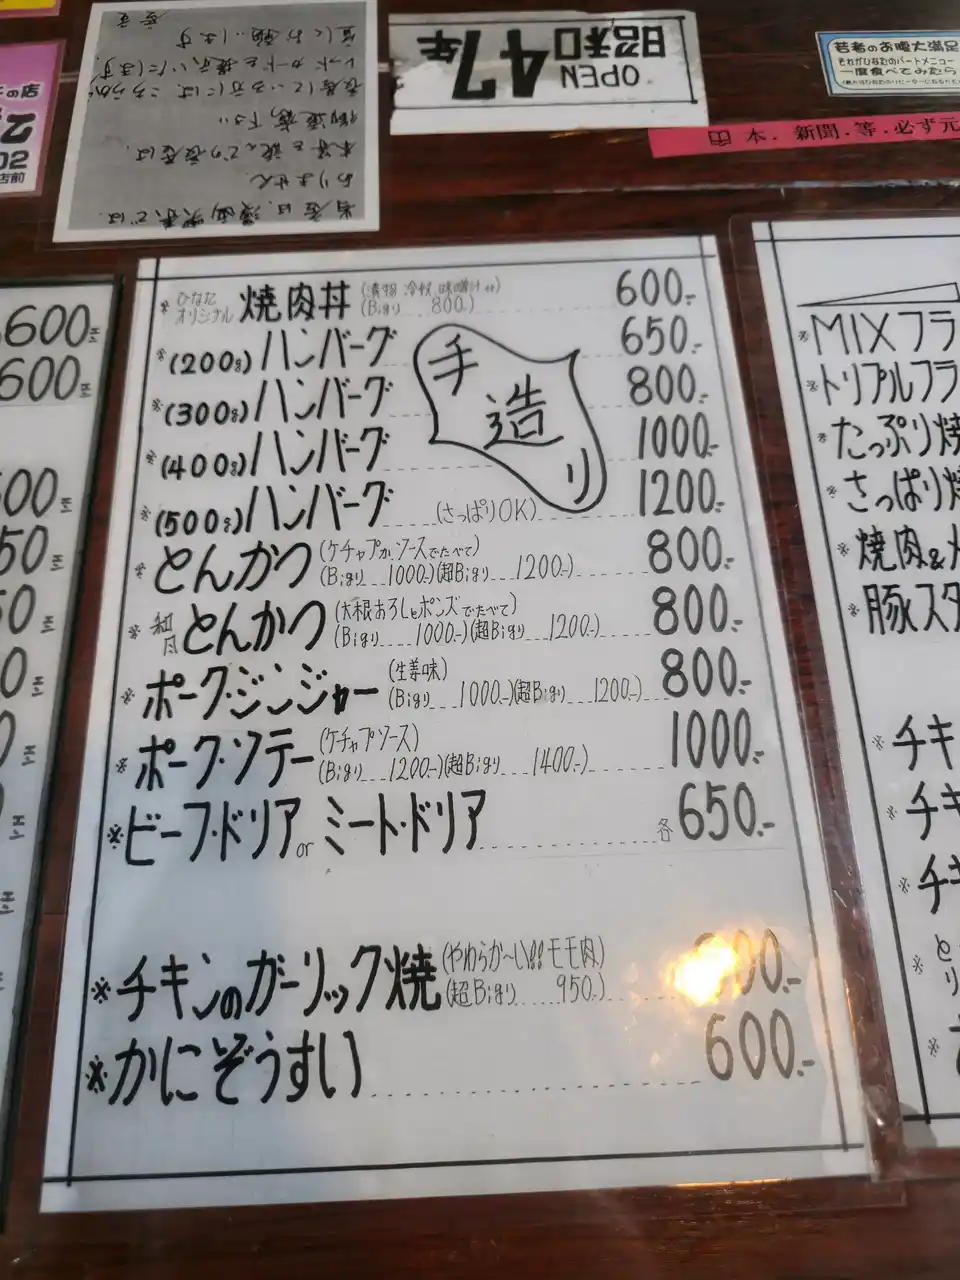 の店
02
店前
当店は、漫画喫茶では、
ありません。
本等を読んでの夜居は、
御遠慮下さい
直にお願いします
OPEN
昭和47年
若者のお腹大満足
一度食べてみたら
本．新聞．等．必ず元
600
600
500
50
50
※ ひなたオリジナル 焼肉丼 (漬物 冷奴 味噌汁付) (Bigり 800.) 600.-
※(200g)ハンバーグ 650.-
※(300g)ハンバーグ 800.-
※(400g)ハンバーグ 1000.-
※(500g)ハンバーグ (さっぱりOK) 1200.-
手造り
※とんかつ (ケチャップかソースでたべて) 800.-
(Bigり 1000.-)(超Bigり 1200.-)
※和風とんかつ (大根おろしとポンズでたべて) 800.-
(Bigり 1000.-)(超Bigり 1200.-)
※ポーク・ジンジャー (生姜味) 800.-
(Bigり 1000.-)(超Bigり 1200.-)
※ポーク・ソテー (ケチャップソース) 1000.-
(Bigり 1200.-)(超Bigり 1400.-)
※ビーフ・ドリア or ミート・ドリア 各650.-
※チキンのガーリック焼 (やわらか〜い!!モモ肉) 00.-
(超Bigり 950.)
※かにぞうすい 600.-
※MIXフラ
※トリプルフラ
※たっぷり焼
※さっぱり焼
※焼肉&メ
※豚スタ
※チキ
※チキ
※チキ